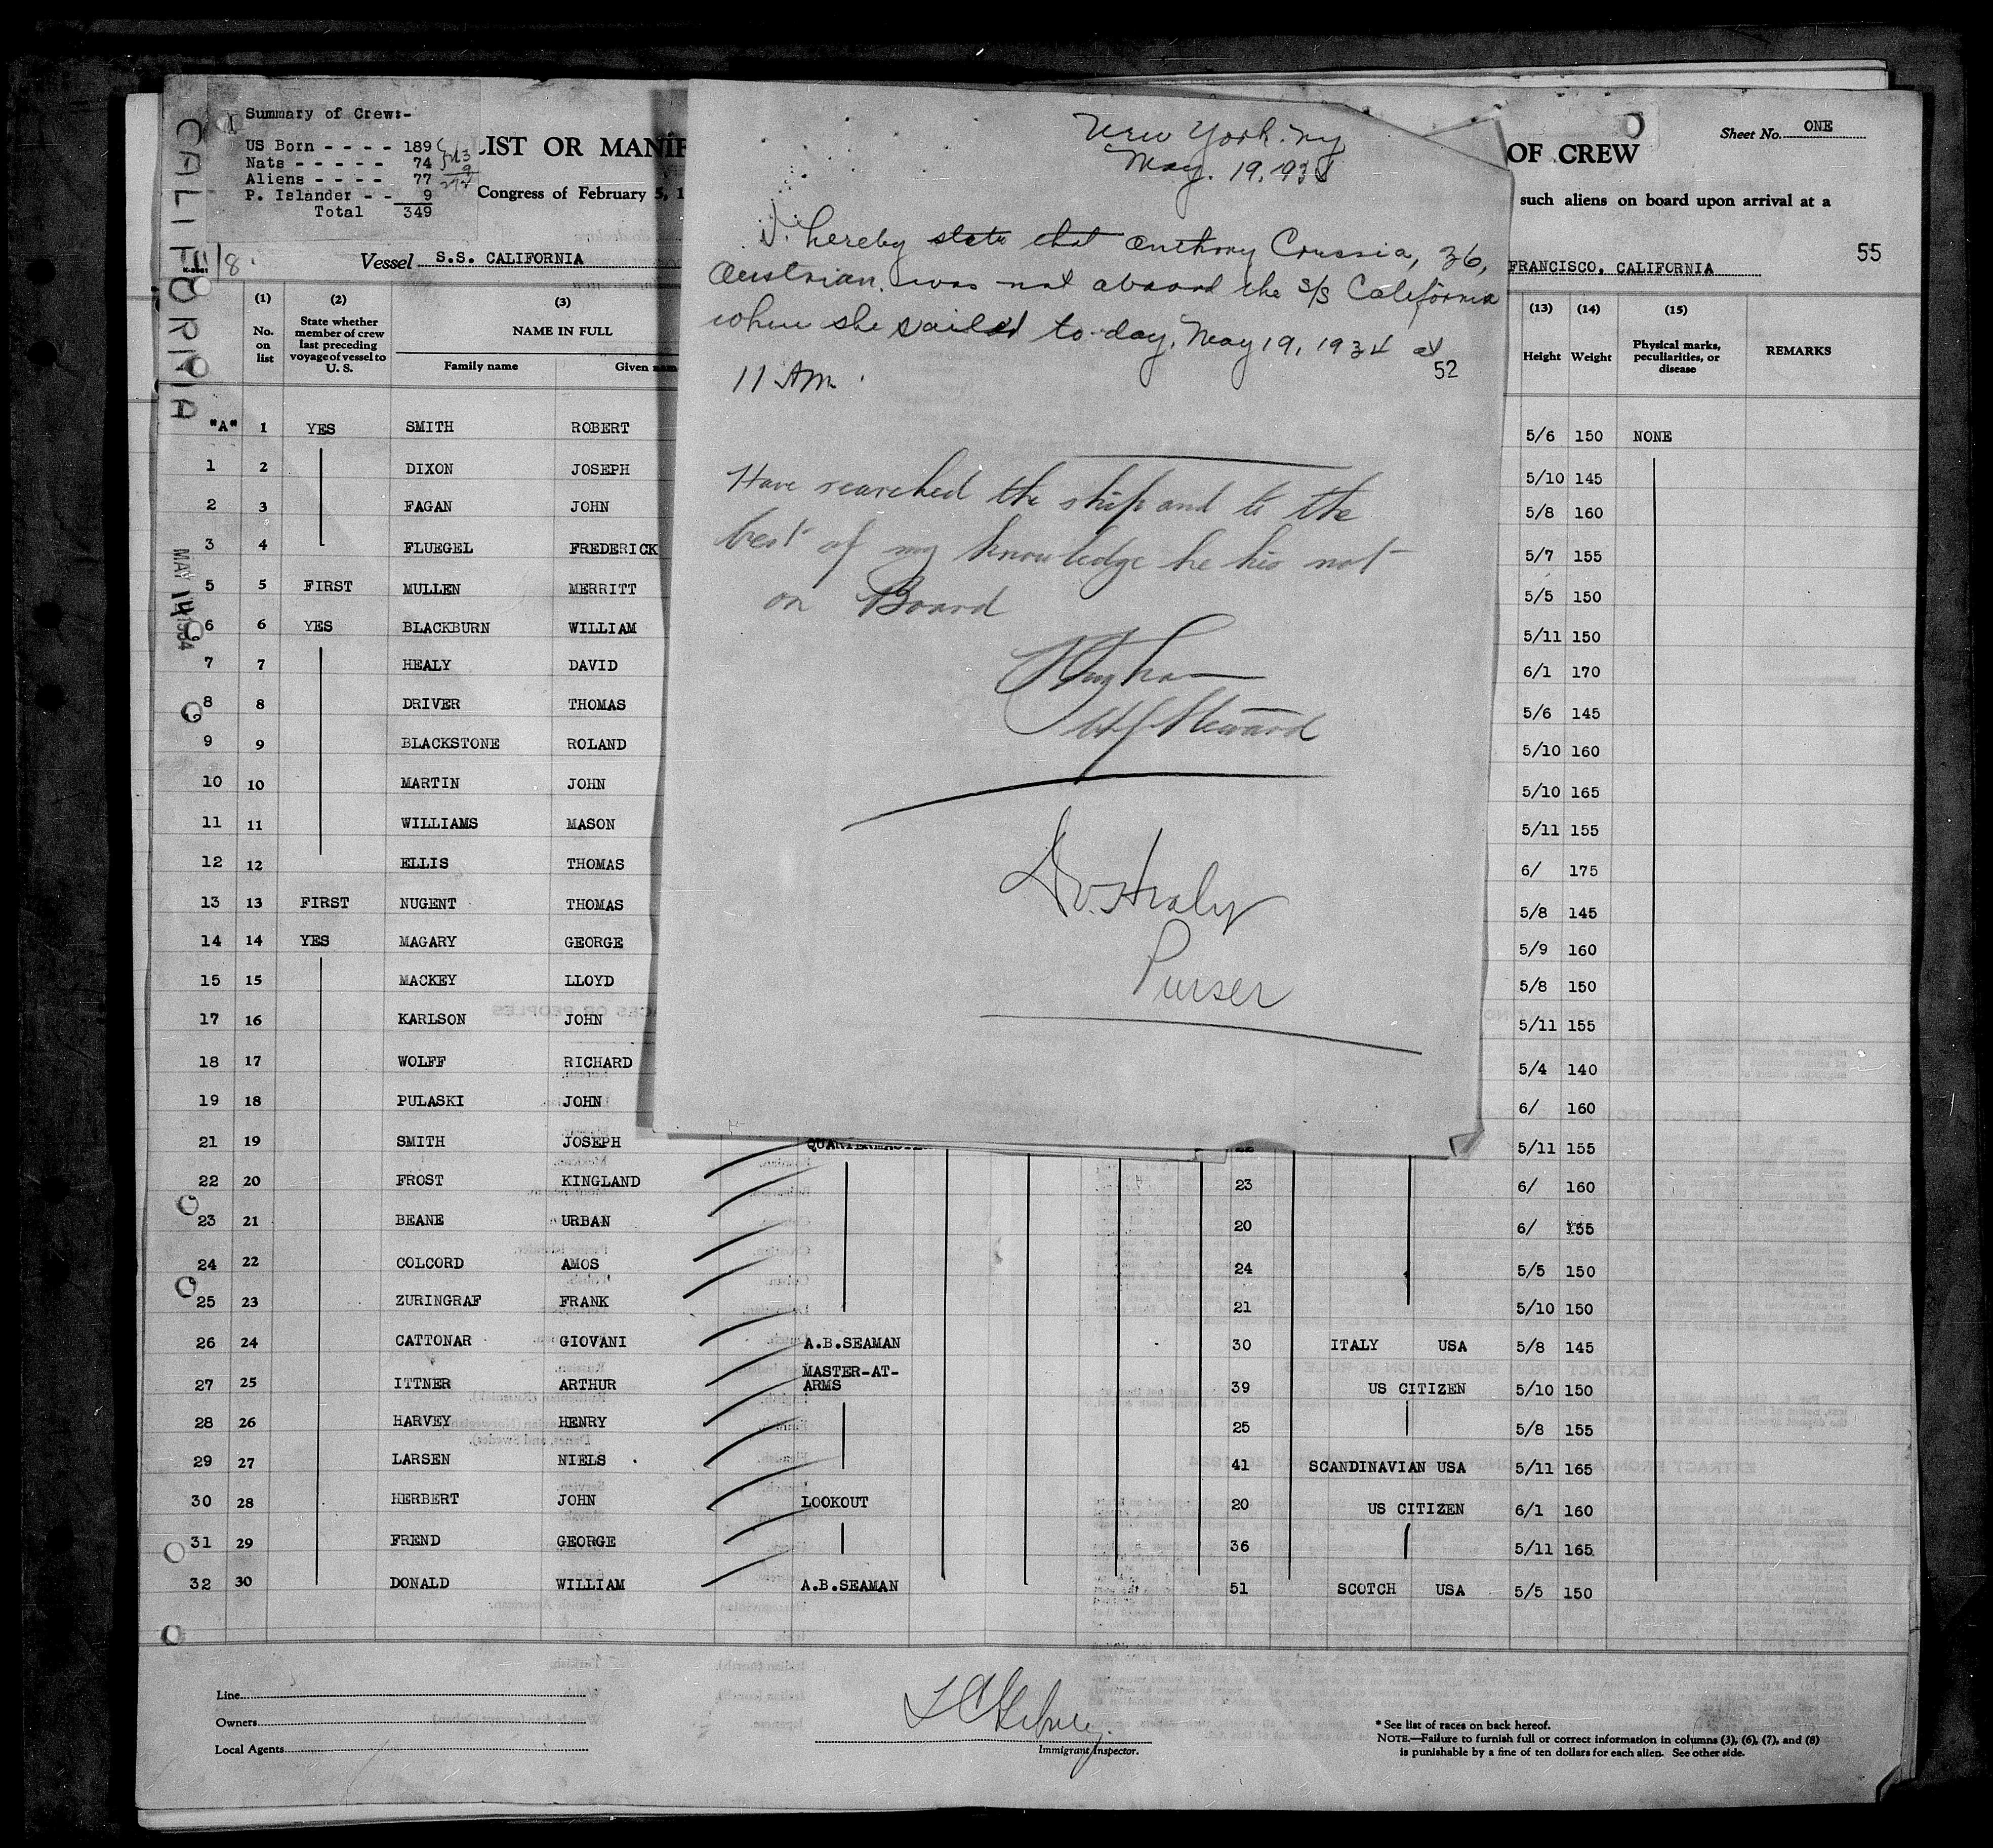 Summary of Crew:-
US Born - - - - 189
Nats - - - - - 74
Aliens - - - - 77
P. Islander - - 9
Total 349
CALIFORNIA
LIST OR MANIF
OF CREW
Sheet No. ONE
Congress of February 5, 1
such aliens on board upon arrival at a
55
Vessel S.S. CALIFORNIA
FRANCISCO, CALIFORNIA
(1) (2) (3) (13) (14) (15)
No. on list
State whether member of crew last preceding voyage of vessel to U. S.
NAME IN FULL
Family name Given nam
Height Weight
Physical marks, peculiarities, or disease
REMARKS
New York. Ny
May. 19, 1934
I. hereby state that Anthony Crussia, 36,
Austrian, was not aboard the S/S California
when she sailed to-day, May 19, 1934 at
52
11 AM.
Have searched the ship and to the
best of my knowledge he his not
on Board
Steward
Purser
MAY 14 1934
"A" 1 YES SMITH ROBERT 5/6 150 NONE
1 2 DIXON JOSEPH 5/10 145
2 3 FAGAN JOHN 5/8 160
3 4 FLUEGEL FREDERICK 5/7 155
5 5 FIRST MULLEN MERRITT 5/5 150
6 6 YES BLACKBURN WILLIAM 5/11 150
7 7 HEALY DAVID 6/1 170
8 8 DRIVER THOMAS 5/6 145
9 9 BLACKSTONE ROLAND 5/10 160
10 10 MARTIN JOHN 5/10 165
11 11 WILLIAMS MASON 5/11 155
12 12 ELLIS THOMAS 6/ 175
13 13 FIRST NUGENT THOMAS 5/8 145
14 14 YES MAGARY GEORGE 5/9 160
15 15 MACKEY LLOYD 5/8 150
17 16 KARLSON JOHN 5/11 155
18 17 WOLFF RICHARD 5/4 140
19 18 PULASKI JOHN 6/ 160
21 19 SMITH JOSEPH QUARTERMASTER 5/11 155
22 20 FROST KINGLAND 23 6/ 160
23 21 BEANE URBAN 20 6/ 155
24 22 COLCORD AMOS 24 5/5 150
25 23 ZURINGRAF FRANK 21 5/10 150
26 24 CATTONAR GIOVANI A.B.SEAMAN 30 ITALY USA 5/8 145
27 25 ITTNER ARTHUR MASTER-AT-ARMS 39 US CITIZEN 5/10 150
28 26 HARVEY HENRY 25 5/8 155
29 27 LARSEN NIELS 41 SCANDINAVIAN USA 5/11 165
30 28 HERBERT JOHN LOOKOUT 20 US CITIZEN 6/1 160
31 29 FREND GEORGE 36 5/11 165
32 30 DONALD WILLIAM A.B.SEAMAN 51 SCOTCH USA 5/5 150
Line
Owners
Local Agents
Immigrant Inspector.
* See list of races on back hereof.
NOTE.—Failure to furnish full or correct information in columns (3), (6), (7), and (8)
is punishable by a fine of ten dollars for each alien. See other side.